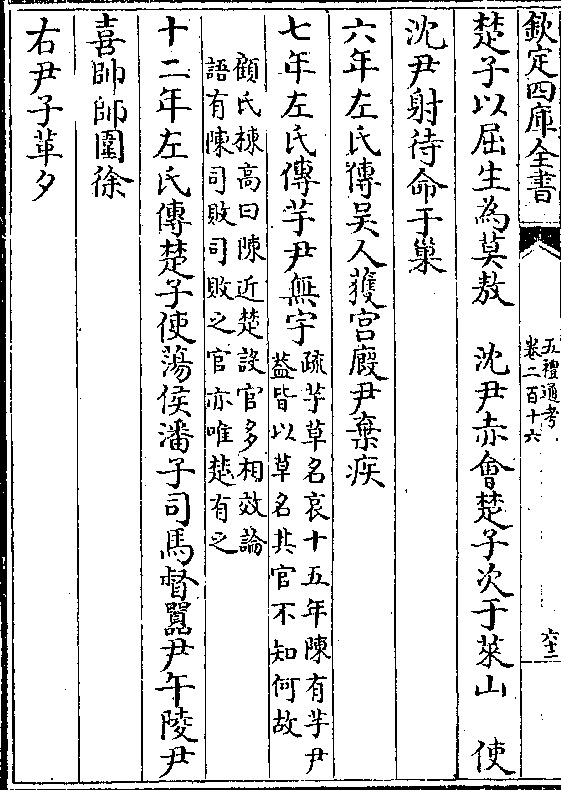 欽定四庫全書
五禮通考
卷二百十六
六十三
楚子以屈生為莫敖　沈尹赤會楚子次于萊山　使
沈尹射待命于巢
六年左氏傳吳人獲宮廄尹棄疾
七年左氏傳芋尹無宇
疏芋草名哀十五年陳有芋尹
葢皆以草名其官不知何故
顧氏棟高曰陳近楚設官多相效論
語有陳司敗司敗之官亦唯楚有之
十二年左氏傳楚子使蕩侯潘子司馬督嚚尹午陵尹
喜帥師圍徐
右尹子革夕